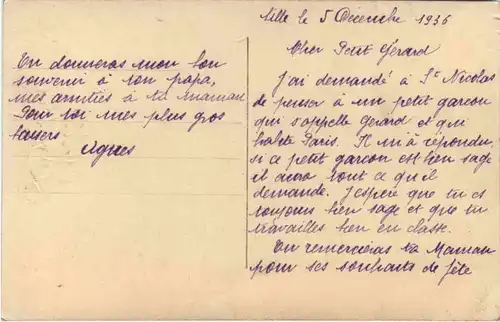 Lille le 5 Décembre 1936
Cher Petit Gérard
J'ai demandé à St Nicolas
de penser à un petit garçon
qui s'appelle Gérard et qui
habite Paris. Il m'a répondu
si ce petit garçon est bien sage
il aura tout ce qu'il
demande. J'espère que tu es
toujours bien sage et que tu
travailles bien en classe.
Tu remercieras ta Maman
pour ses souhaits de fête
Tu donneras mon bon
souvenir à ton papa,
mes amitiés à ta maman
Pour toi mes plus gros
baisers
Agnès